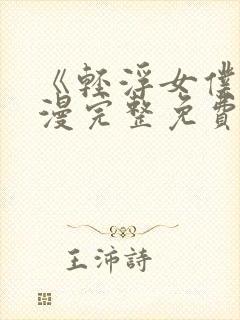 《輕浮女僕
漫完整免費
王沛詩